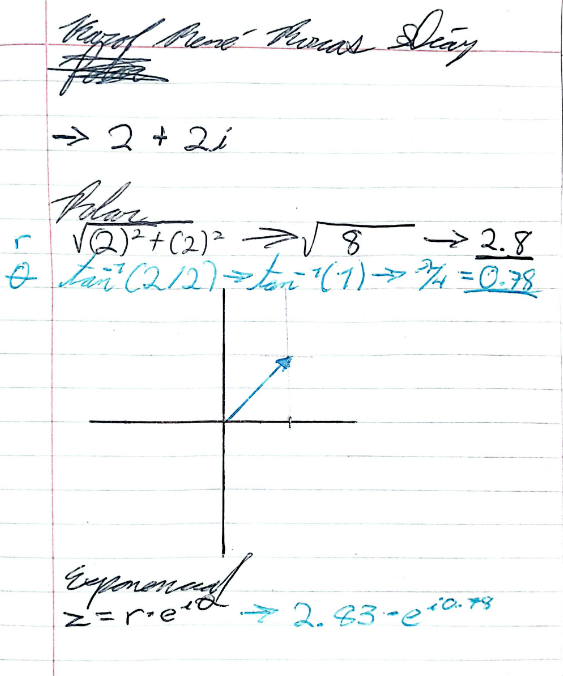 René Rosas Díaz
→ 2 + 2i
Polar
r √(2)² + (2)² → √8 → 2.8
θ tan⁻¹(2/2) → tan⁻¹(1) → π/4 = 0.78
Exponencial
z = r·e^iθ → 2.83·e^i0.78